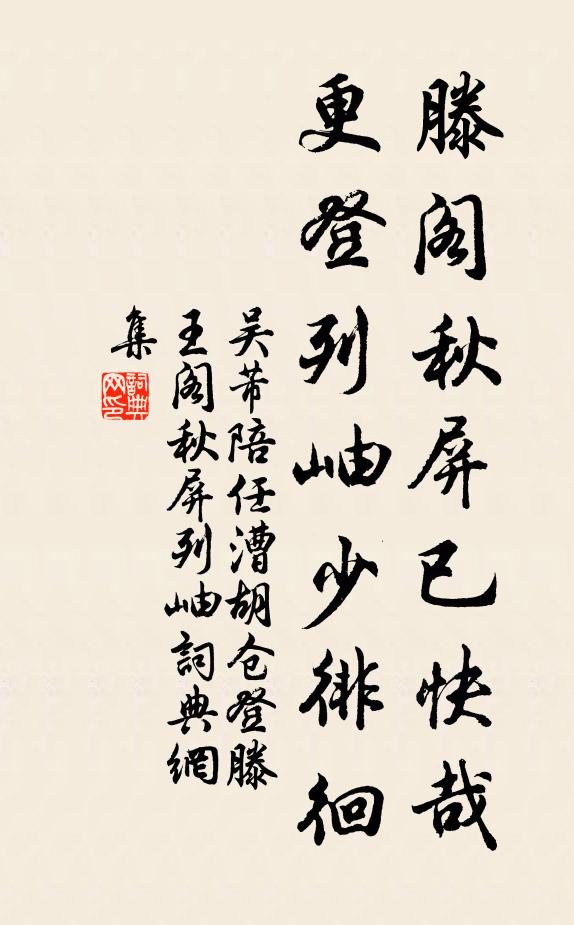 滕阁秋屏已快哉
更登列岫少徘徊
吴芾陪任漕胡仓登滕
王阁秋屏列岫詞典網
集
詞典
网印